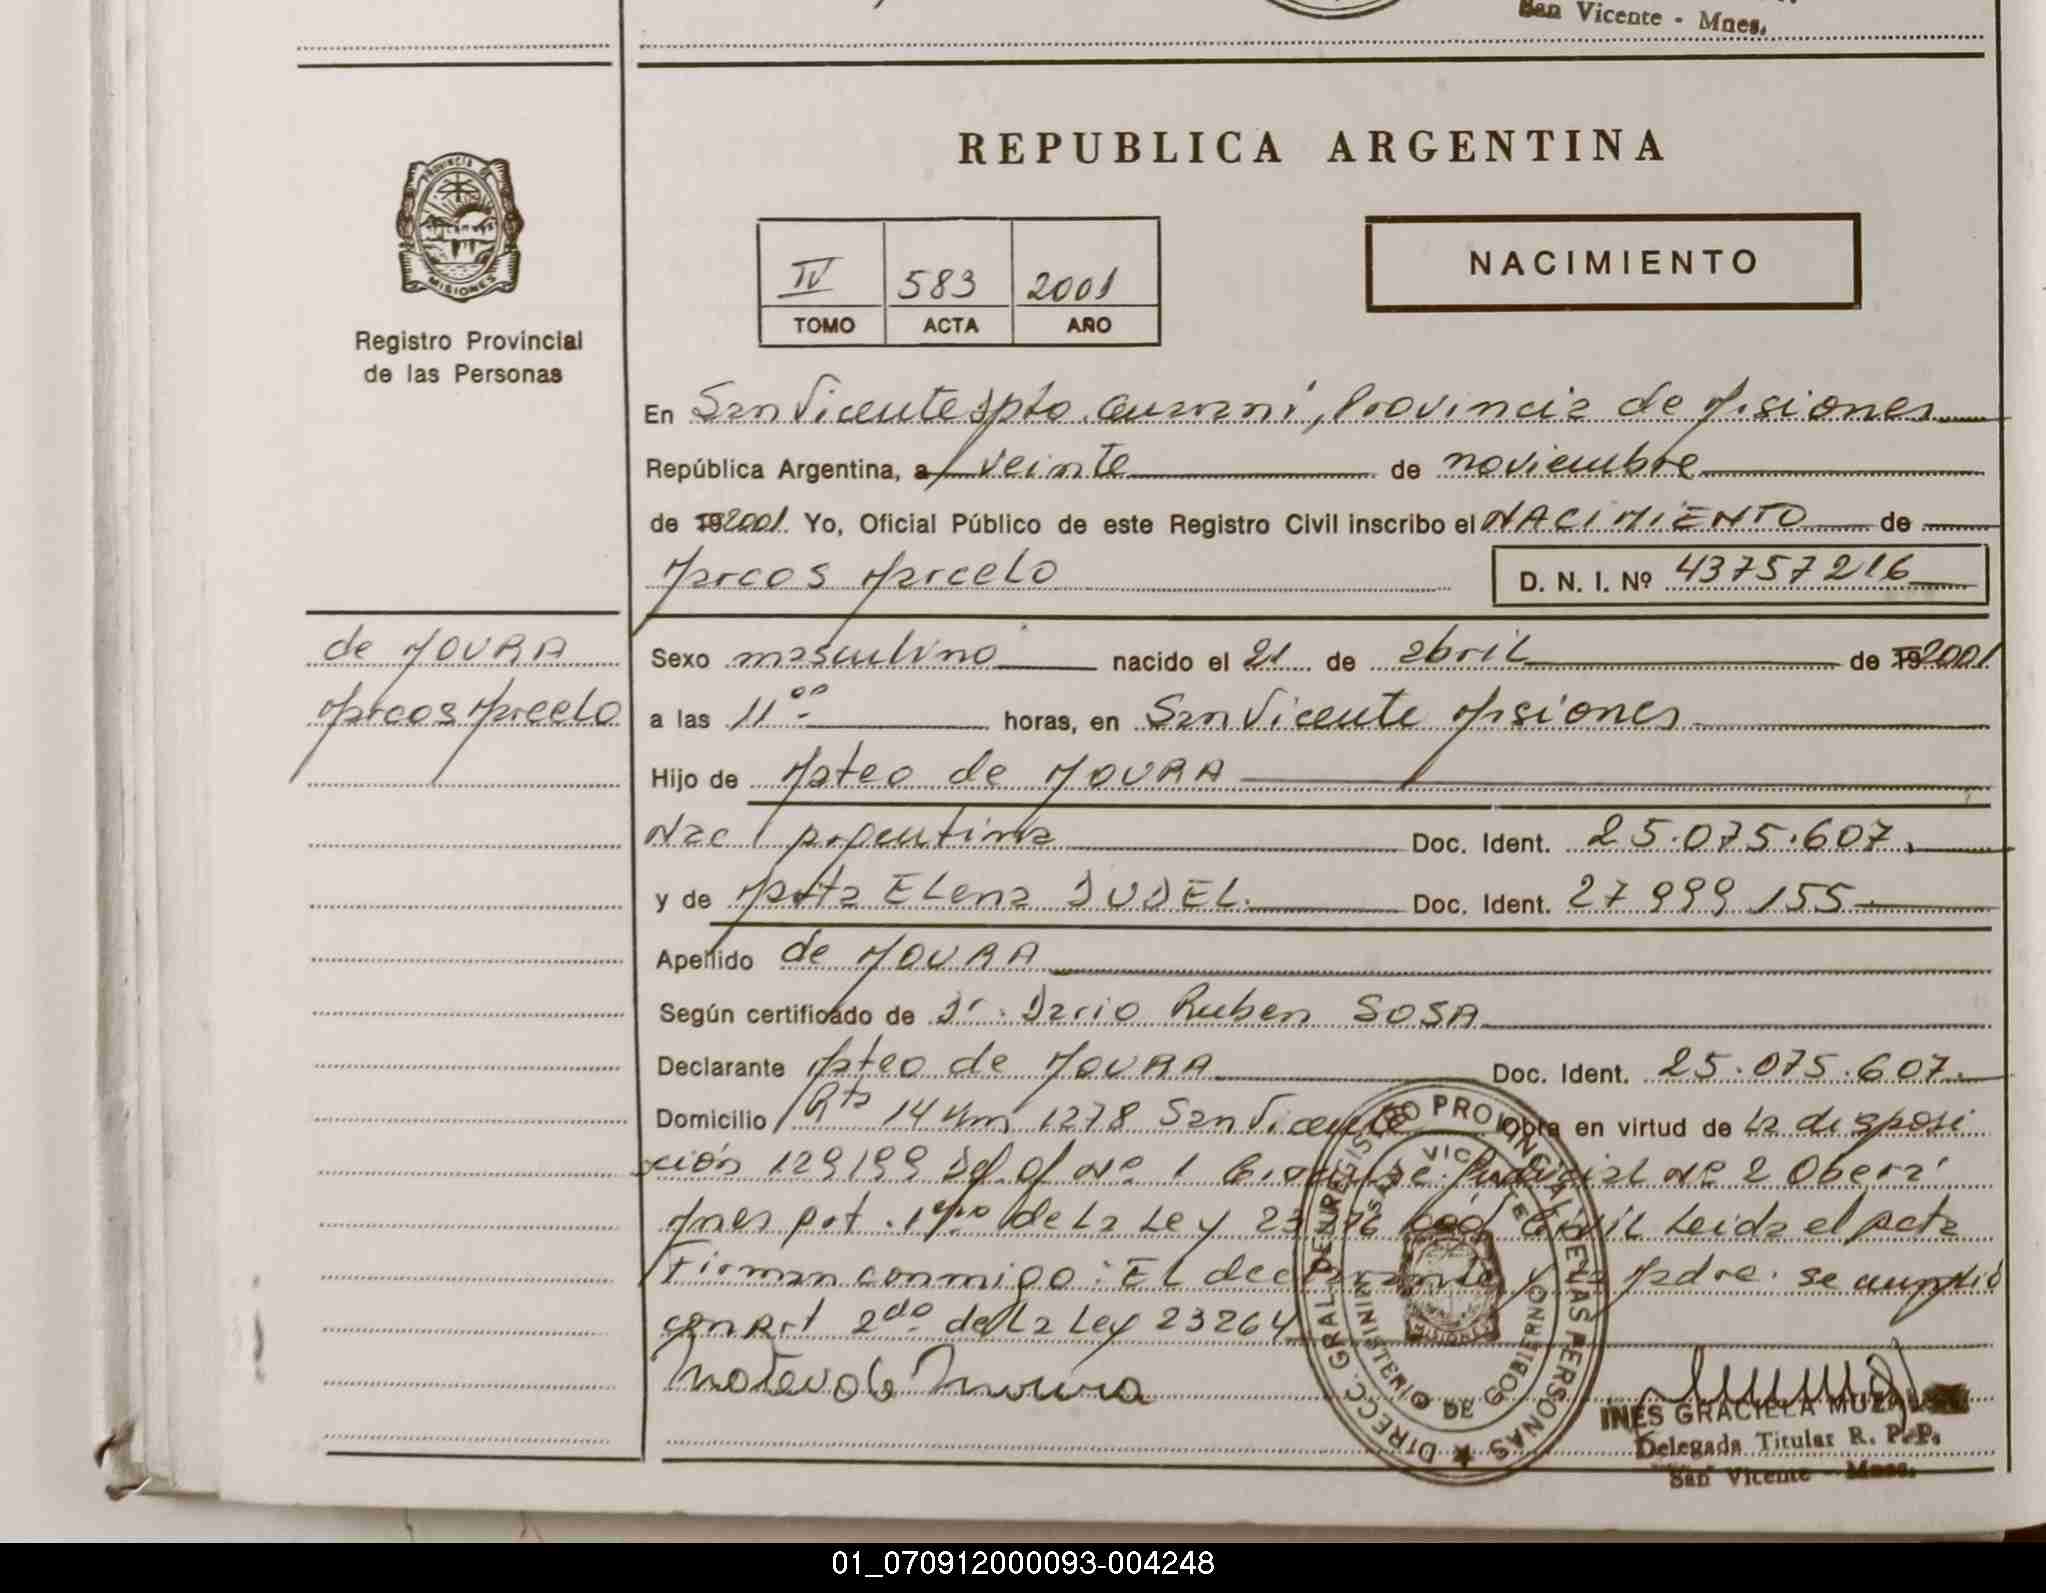 San Vicente - Mnes.
REPUBLICA ARGENTINA
PROVINCIA DE
MISIONES
Registro Provincial
de las Personas
IV 583 2001
TOMO ACTA AÑO
NACIMIENTO
En San Vicente Dpto. Guarani, Provincia de Misiones
República Argentina, a veinte de noviembre
de 192001. Yo, Oficial Público de este Registro Civil inscribo el NACIMIENTO de
Marcos Marcelo D. N. I. Nº 43757216
de MOURA
Marcos Marcelo
Sexo masculino nacido el 21 de abril de 192001
a las 11 00 horas, en San Vicente Misiones
Hijo de Mateo de MOURA
Nac Argentina Doc. Ident. 25.075.607.
y de Marta ELena DUDEL. Doc. Ident. 27 999 155
Apellido de MOURA
Según certificado de Dr. Dario Ruben SOSA
Declarante Mateo de MOURA Doc. Ident. 25.075.607.
Domicilio Rta 14 Km 1278 San Vicente Obra en virtud de La disposi
ción 129199 Nº 1 Judicial Nº 2 Obera
Mnes Art. 1ero de La Ley Civil Leida el Acta
Firman conmigo: El declarante y la Madre. se cumplió
con Art 2do de La Ley 23264
Mateo de Moura
DIRECC. GRAL. DEL REGISTRO PROVINCIAL DE LAS PERSONAS
SAN VICENTE
MINISTERIO DE GOBIERNO
MISIONES
INES GRACIELA
Delegada Titular R. P. P.
San Vicente - Mnes.
01_070912000093-004248